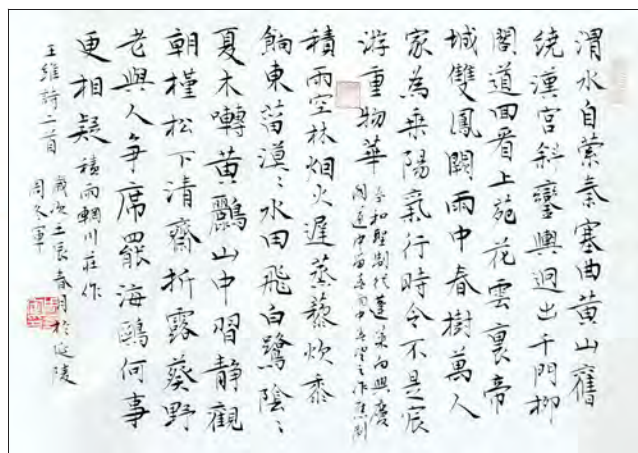 渭水自萦秦塞曲黄山舊
繞漢宮斜鑾輿迥出千門柳
閣道回看上苑花雲裏帝
城雙鳳闕雨中春樹萬人
家為乘陽氣行時令不是宸
游重物華
奉和聖制從蓬萊向興慶
閣道中留春雨中春望之作應制
積雨空林烟火遲蒸藜炊黍
餉東菑漠〻水田飛白鷺陰〻
夏木囀黄鸝山中習静觀
朝槿松下清齋折露葵野
老與人争席罷海鷗何事
更相疑 積雨輞川莊作
王維詩二首 歲次壬辰春月於延陵
周冬軍